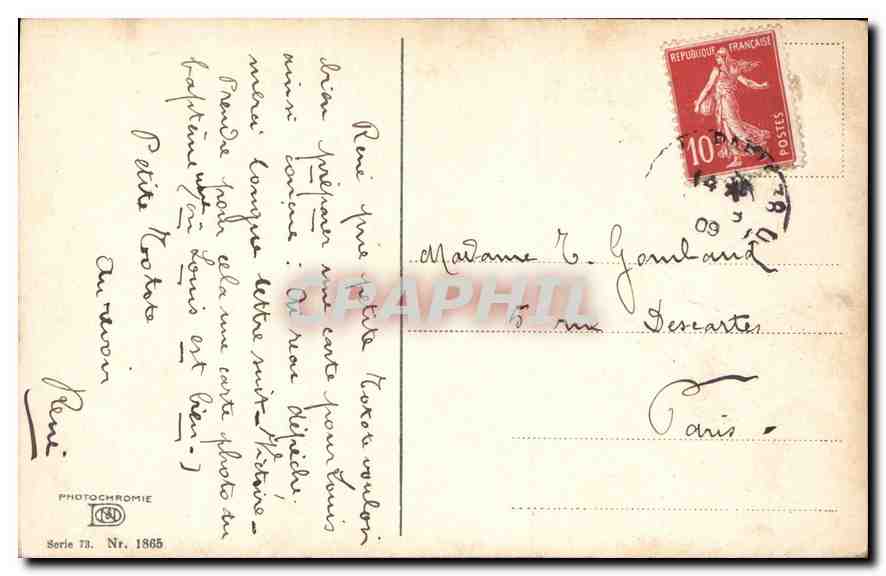 René prie petite Kokote vouloir
bien préparer une carte pour Louis
ainsi conçue : Oreau dépêché.
merci longue lettre suit - Victoire -
Prendre pour cela une carte photo du
baptême où Louis est bien.)
Petite Kokote
Au revoir
René
PHOTOCHROMIE
Serie 73. Nr. 1865
REPUBLIQUE FRANÇAISE
10
POSTES
09
Madame T. Gombaud
5 rue Descartes
Paris.
CPAPHIL